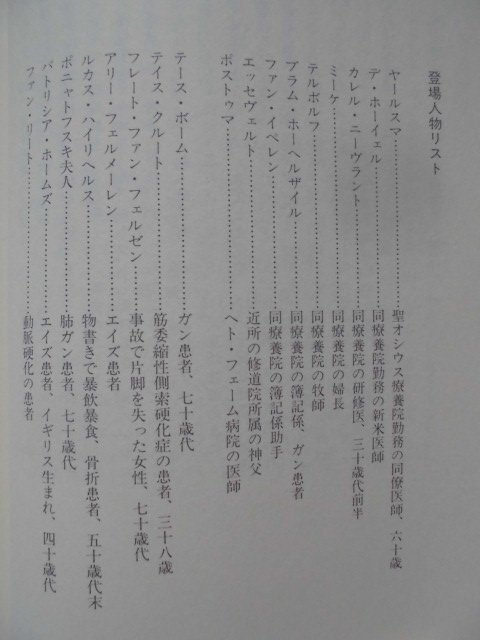 登場人物リスト
ヤールスマ……………………聖オシウス療養院勤務の同僚医師、六十歳
デ・ホーイェル……………………同療養院勤務の新米医師
カレル・ニーヴラント……………………同療養院の研修医、三十歳代前半
ミーケ……………………同療養院の婦長
テルボルフ……………………同療養院の牧師
ブラム・ホーヘルザイル……………………同療養院の簿記係、ガン患者
ファン・イペレン……………………同療養院の簿記係助手
エッセヴェルト……………………近所の修道院所属の神父
ポストゥマ……………………ヘト・フェーム病院の医師
テース・ボーム……………………ガン患者、七十歳代
テイス・クルート……………………筋委縮性側索硬化症の患者、三十八歳
フレート・ファン・フェルゼン……………………事故で片脚を失った女性、七十歳代
アリー・フェルメーレン……………………エイズ患者
ルカス・ハイリヘルス……………………物書きで暴飲暴食、骨折患者、五十歳代末
ポニャトフスキ夫人……………………肺ガン患者、七十歳代
パトリシア・ホームズ……………………エイズ患者、イギリス生まれ、四十歳代
ファン・リート……………………動脈硬化の患者